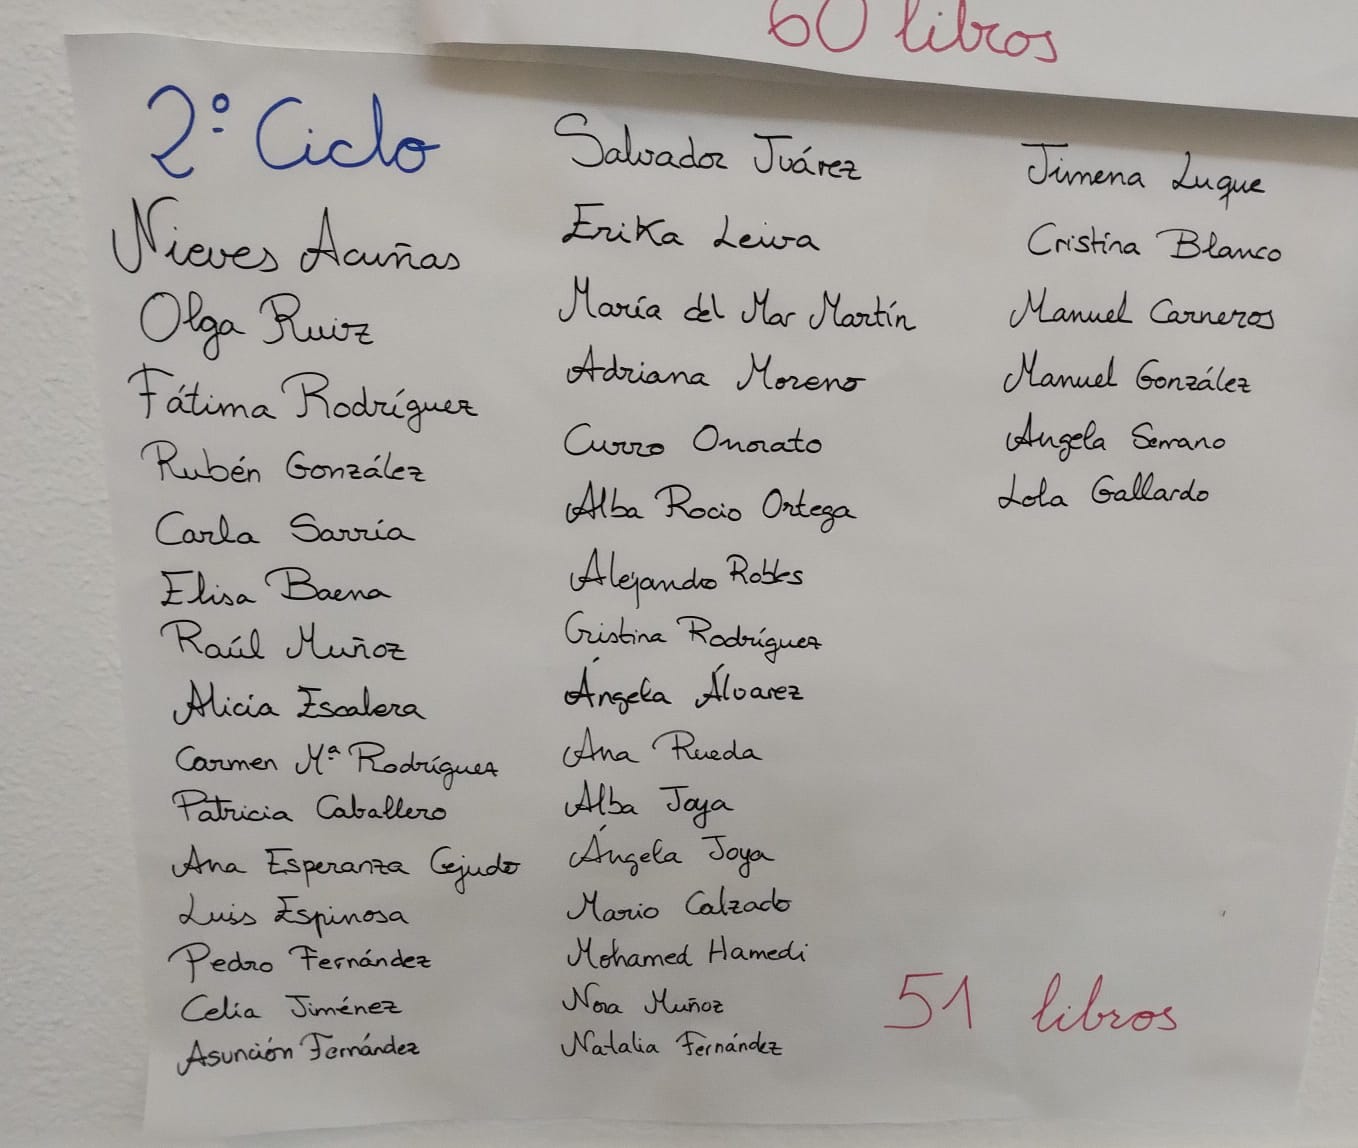 60 libros
2º Ciclo
Nieves Acuñas
Olga Ruiz
Fátima Rodríguez
Rubén González
Carla Sarria
Elisa Baena
Raúl Muñoz
Alicia Escalera
Carmen Mª Rodríguez
Patricia Caballero
Ana Esperanza Cejudo
Luis Espinosa
Pedro Fernández
Celia Jiménez
Asunción Fernández
Salvador Juárez
Erika Leiva
María del Mar Martín
Adriana Moreno
Curro Onorato
Alba Rocio Ortega
Alejandro Robles
Cristina Rodríguez
Ángela Álvarez
Ana Rueda
Alba Joya
Ángela Joya
Mario Calzado
Mohamed Hamedi
Nora Muñoz
Natalia Fernández
Jimena Luque
Cristina Blanco
Manuel Carneros
Manuel González
Angela Serrano
Lola Gallardo
51 libros